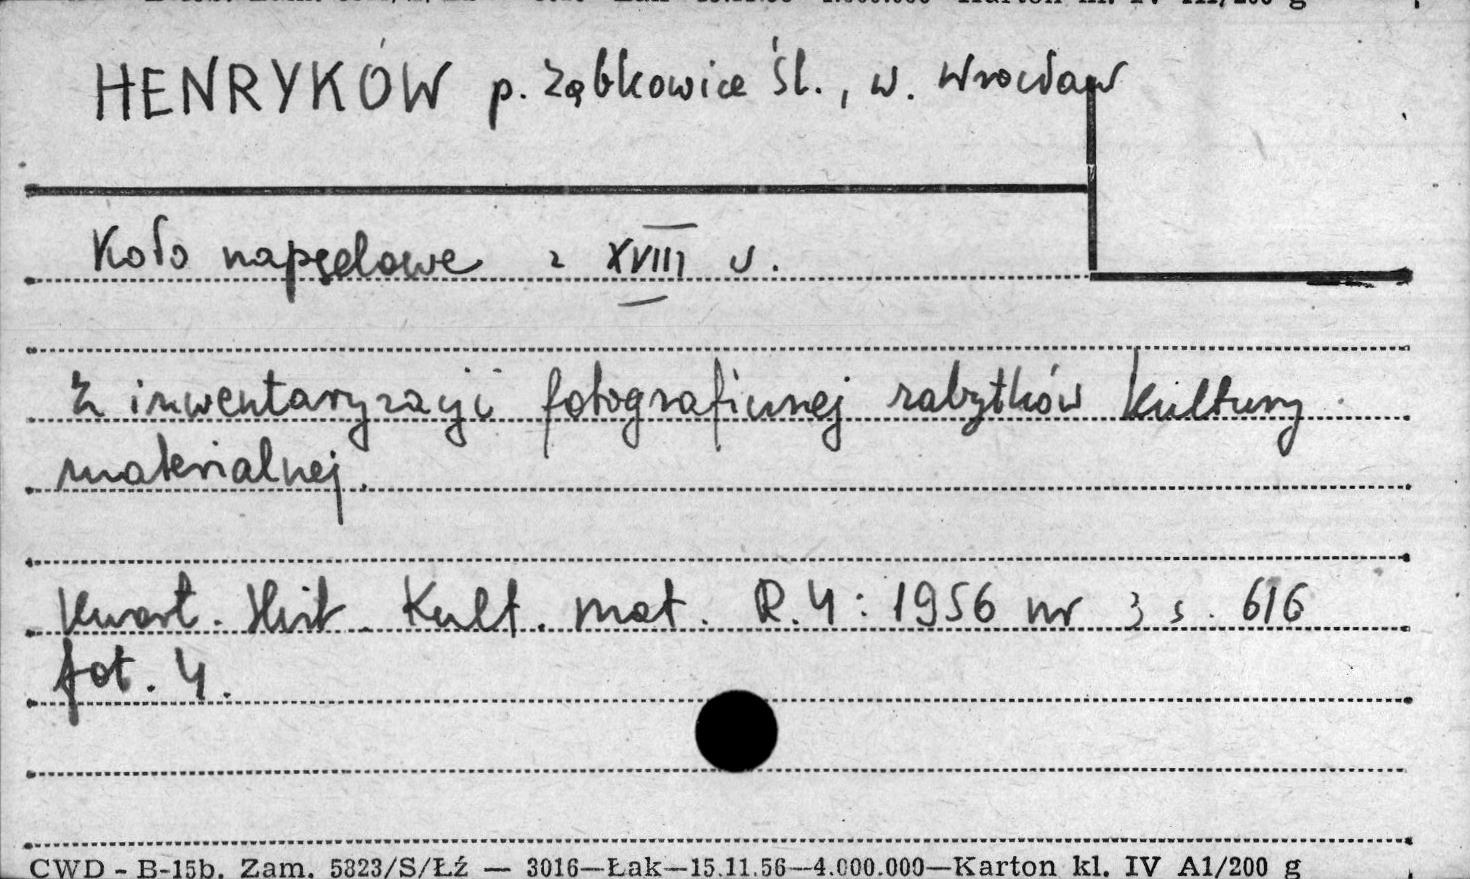 HENRYKÓW p. Ząbkowice Śl., w. Wrocław
Koło napędowe z XVIII w.
Z inwentaryzacji fotograficznej zabytków kultury
materialnej.
Kwart. Hist. Kult. mat. R.4: 1956 nr 3 s. 616
fot. 4.
CWD - B-15b. Zam. 5323/S/Łź — 3016—Łak—15.11.56—4.000.000—Karton kl. IV A1/200 g